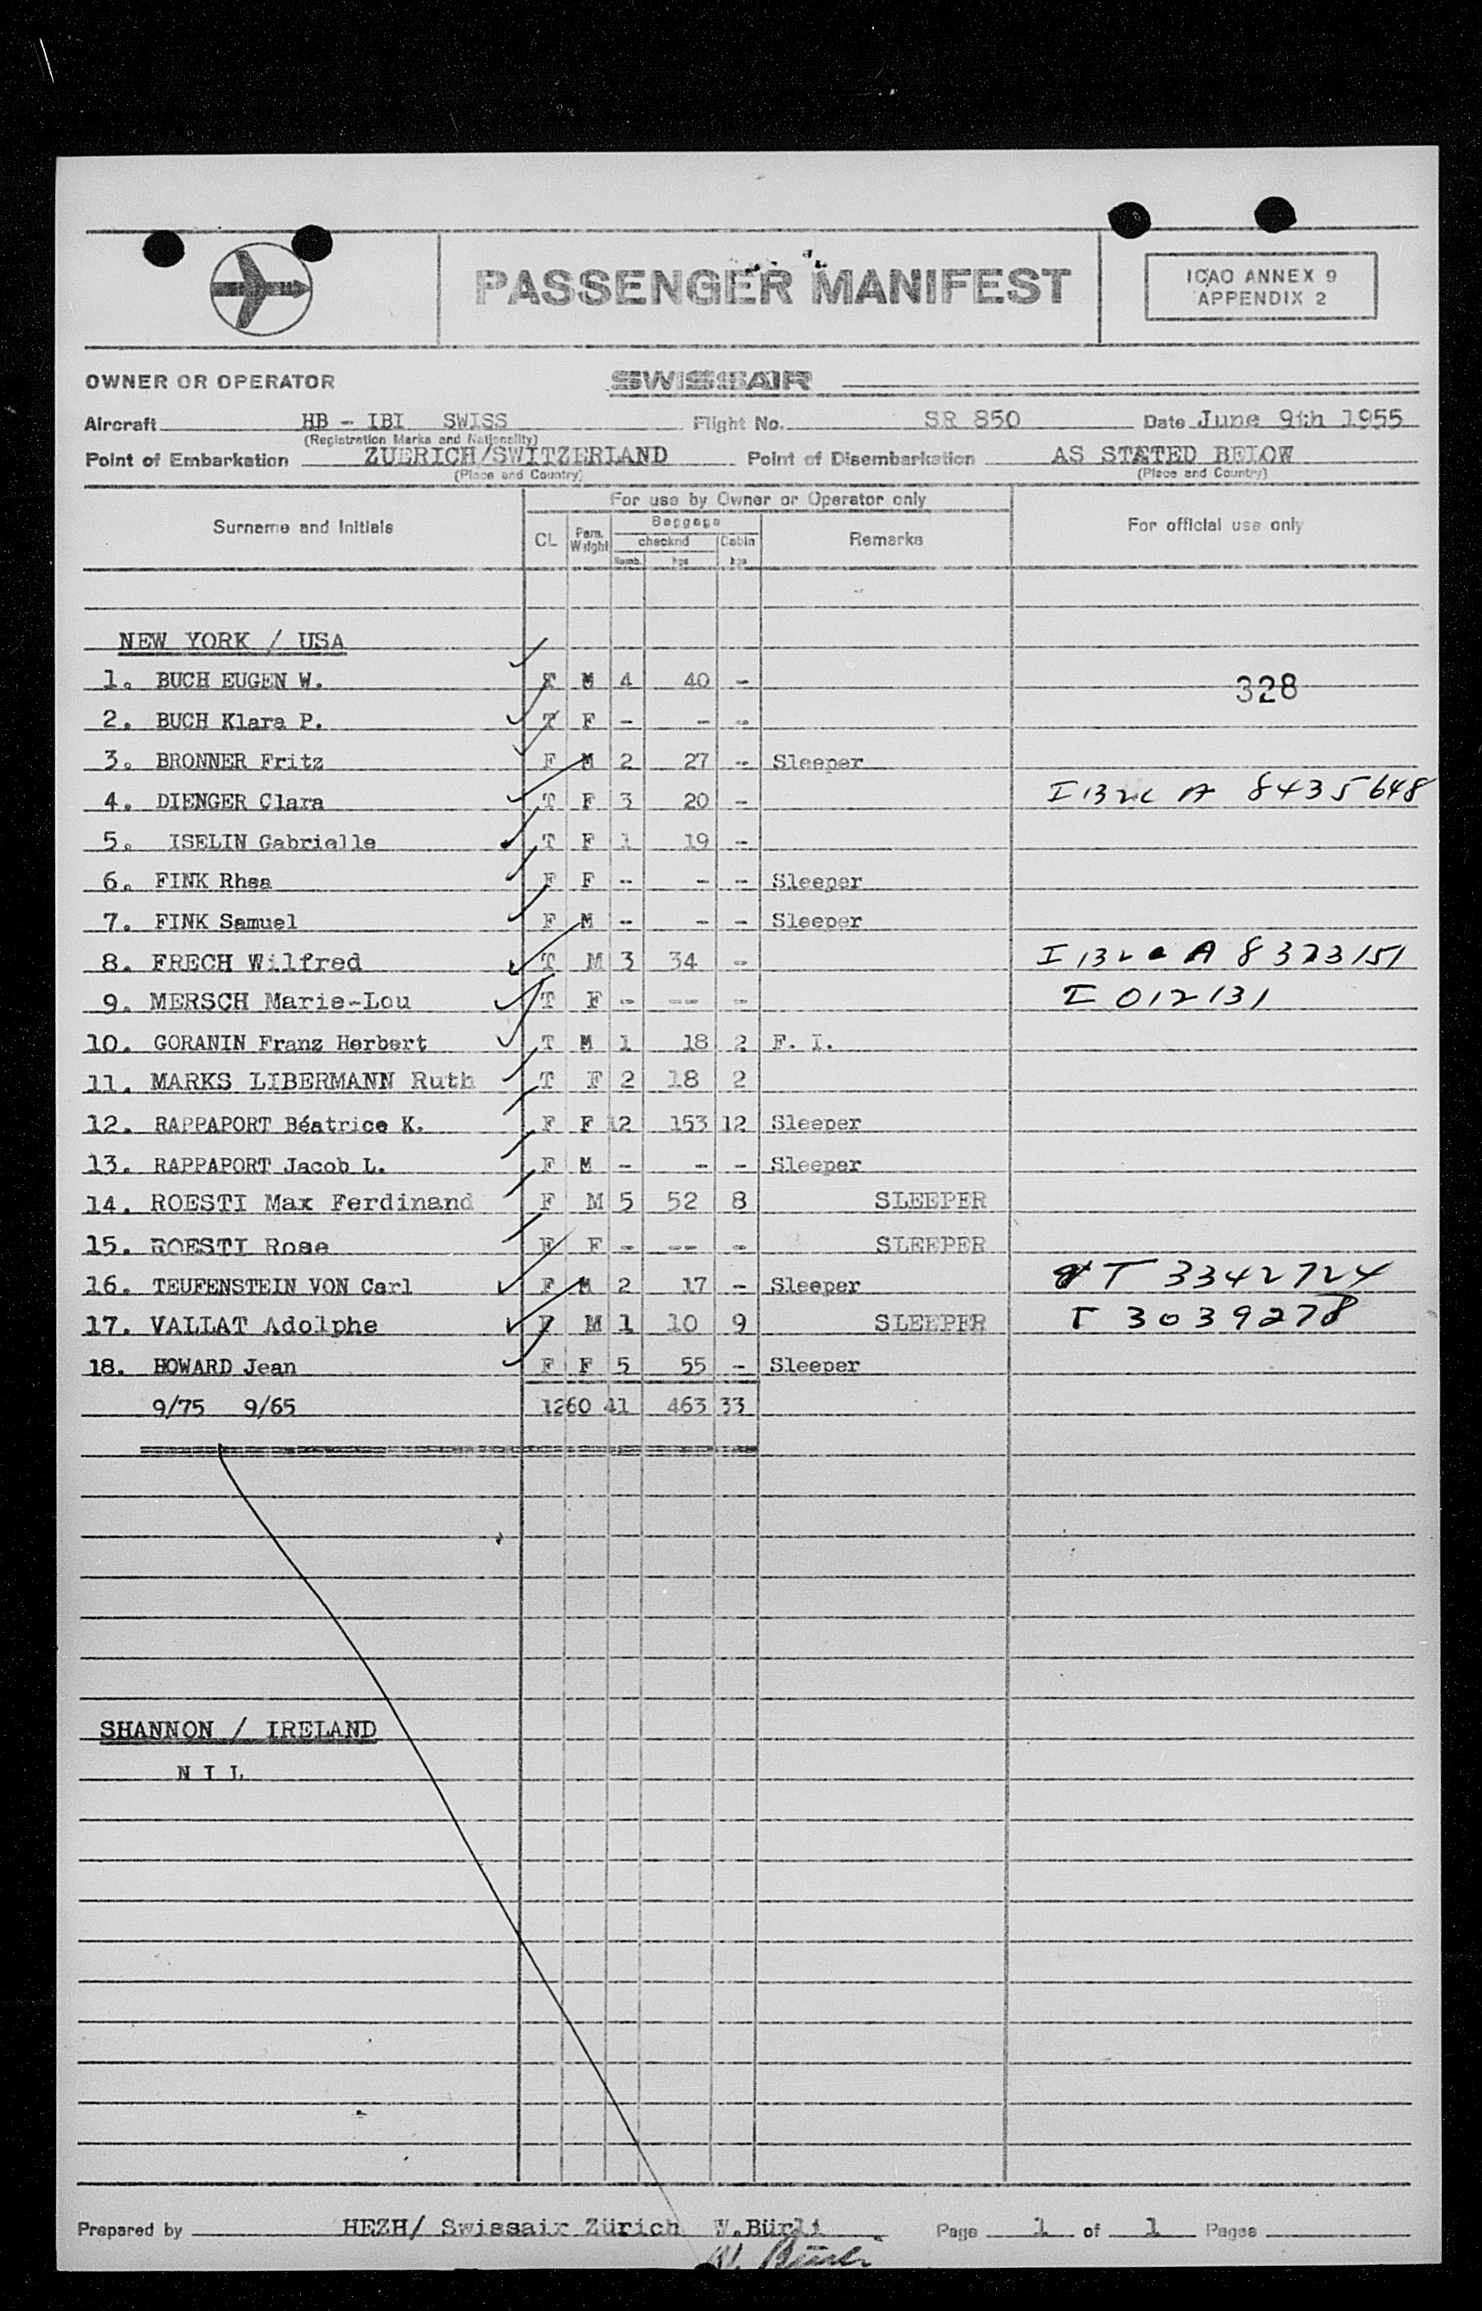 PASSENGER MANIFEST
ICAO ANNEX 9
APPENDIX 2
OWNER OR OPERATOR SWISSAIR
Aircraft HB - IBI SWISS Flight No. SR 850 Date June 9th 1955
(Registration Marks and Nationality)
Point of Embarkation ZUERICH/SWITZERLAND Point of Disembarkation AS STATED BELOW
(Place and Country) (Place and Country)
For use by Owner or Operator only
Surname and Initials CL Pass. Weight Baggage Remarks For official use only
checked Cabin
Numb. kgs kgs
NEW YORK / USA
1. BUCH EUGEN W. T M 4 40 - 328
2. BUCH Klara P. T F - - -
3. BRONNER Fritz F M 2 27 - Sleeper
4. DIENGER Clara T F 3 20 - I 132c A 8435648
5. ISELIN Gabrielle T F 1 19 -
6. FINK Rhea F F - - - Sleeper
7. FINK Samuel F M - - - Sleeper
8. FRECH Wilfred T M 3 34 - I 132c A 8323151
9. MERSCH Marie-Lou T F - -- - I 012131
10. GORANIN Franz Herbert T M 1 18 2 F. I.
11. MARKS LIBERMANN Ruth T F 2 18 2
12. RAPPAPORT Béatrice K. F F 12 153 12 Sleeper
13. RAPPAPORT Jacob L. F M - - - Sleeper
14. ROESTI Max Ferdinand F M 5 52 8 SLEEPER
15. ROESTI Rose F F - -- - SLEEPER
16. TEUFENSTEIN VON Carl F M 2 17 - Sleeper T 3342724
17. VALLAT Adolphe F M 1 10 9 SLEEPER T 3039278
18. HOWARD Jean F F 5 55 - Sleeper
9/75 9/65 1260 41 463 33
SHANNON / IRELAND
N I L
Prepared by HEZH/ Swissair Zürich W.Bürli Page 1 of 1 Pages
W. Bürli